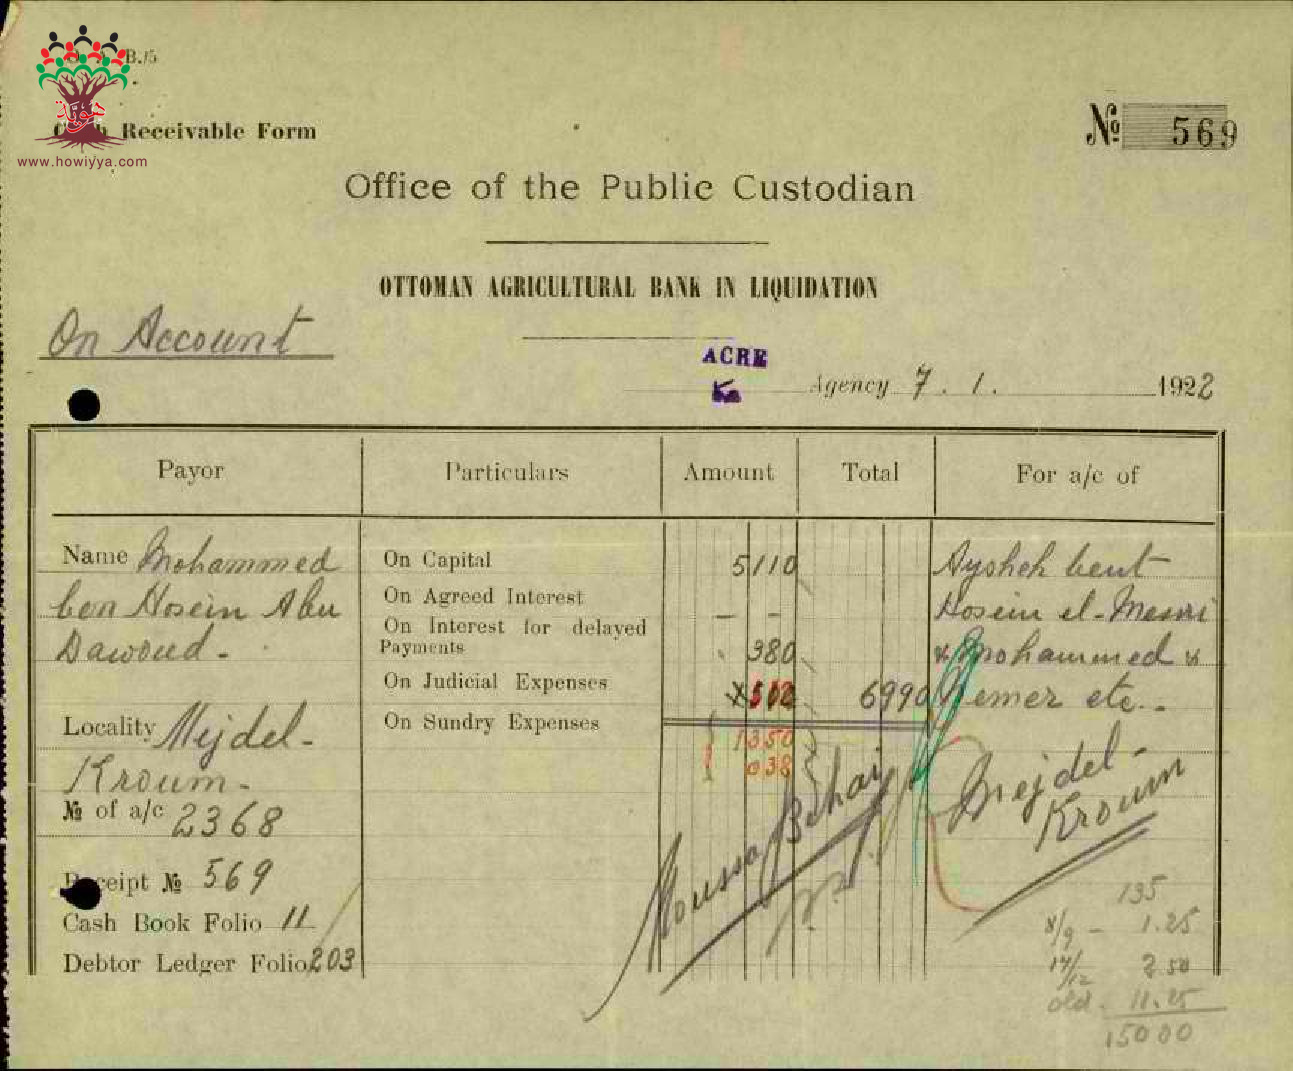 B./5
هوية
www.howiyya.com
Receivable Form
№ 569
Office of the Public Custodian
OTTOMAN AGRICULTURAL BANK IN LIQUIDATION
On Account
ACRE
Agency 7. 1. 1922
Payor Particulars Amount Total For a/c of
Name Mohammed On Capital 5110 Aysheh bent
ben Hosein Abu On Agreed Interest - - Hosein el-Masri
Dawoud - On Interest for delayed Payments 380 & Mohammed &
On Judicial Expenses 6990 Nemer etc. -
Locality Mejdel - On Sundry Expenses 1350
Kroum - 038 Mejdel -
Kroum
№ of a/c 2368
Moussa
Receipt № 569
135
Cash Book Folio 11
8/9 - 1.25
Debtor Ledger Folio 203
17/12 2.50
old - 11.25
15000